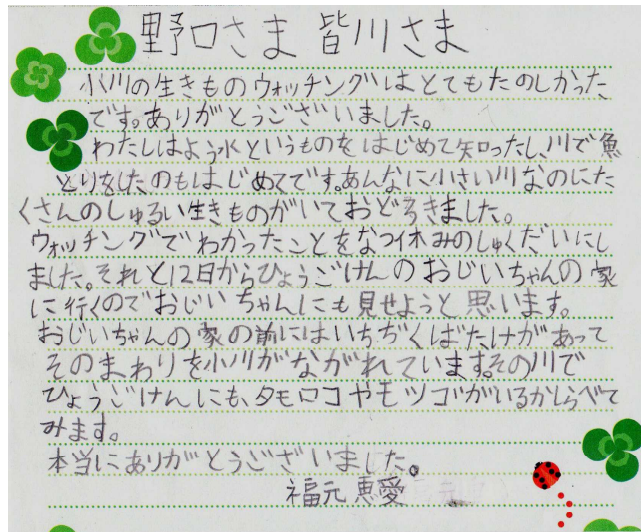 野口さま 皆川さま
小川の生きものウォッチングはとてもたのしかった
です。ありがとうございました。
わたしはよう水というものをはじめて知ったし、川で魚
とりをしたのもはじめてです。あんなに小さい川なのにた
くさんのしゅるい生きものがいておどろきました。
ウォッチングでわかったことをなつ休みのしゅくだいにし
ました。それと12日からひょうごけんのおじいちゃんの家
に行くのでおじいちゃんにも見せようと思います。
おじいちゃんの家の前にはいちぢくばたけがあって
そのまわりを小川がながれています。その川で
ひょうごけんにも、タモロコやモツゴがいるかしらべて
みます。
本当にありがとうございました。
福元 恵愛